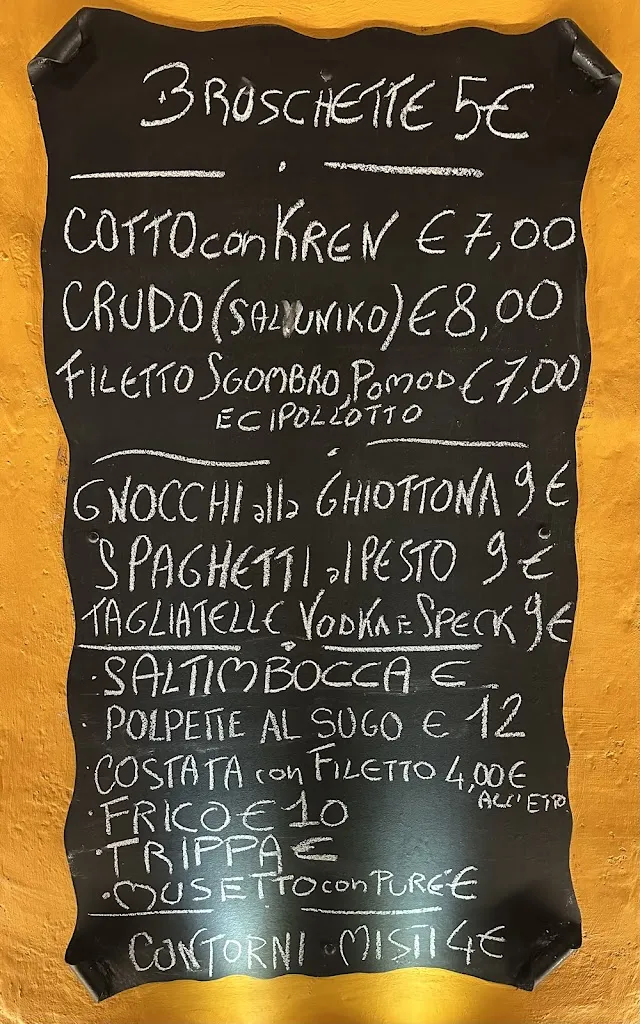 BRUSCHETTE 5€
COTTO con KREN € 7,00
CRUDO (SAL UNIKO) € 8,00
FILETTO SGOMBRO, POMOD € 7,00
E CIPOLLOTTO
GNOCCHI alla GHIOTTONA 9 €
SPAGHETTI al PESTO 9 €
TAGLIATELLE VODKA E SPECK 9€
· SALTIMBOCCA €
POLPETTE AL SUGO € 12
· COSTATA con FILETTO 4,00€
ALL'ETTO
· FRICO € 10
· TRIPPA €
· MUSETTO con PURÈ €
CONTORNI MISTI 4€